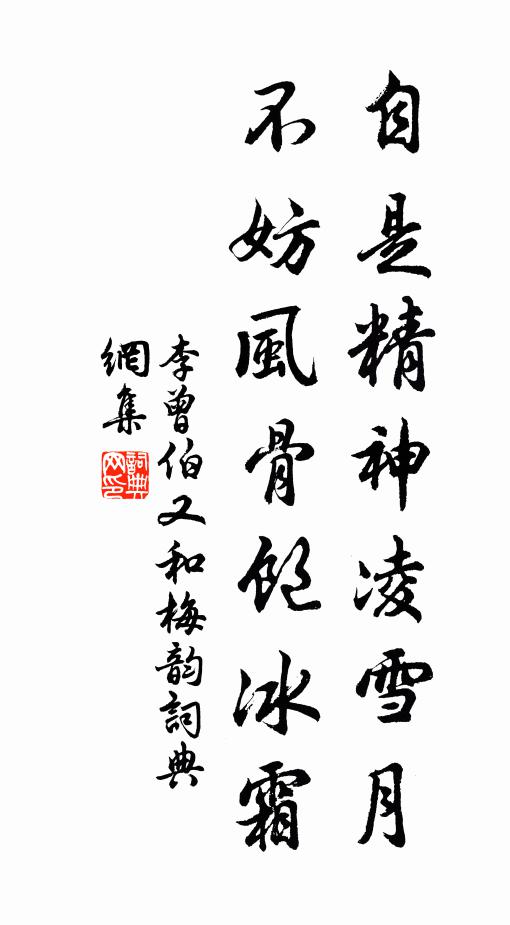 自是精神凌雪月
不妨風骨飽冰霜
李曾伯又和梅韵詞典
網集
詞典
网印